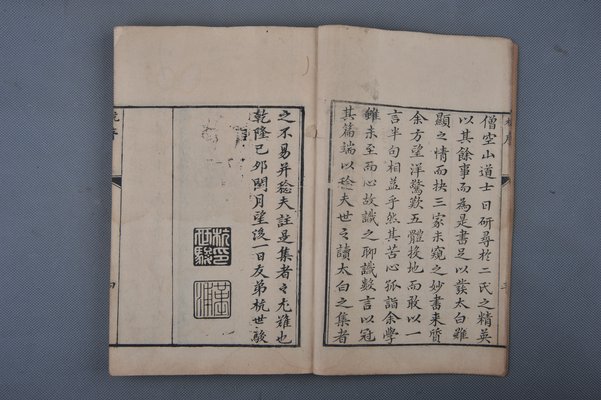 僧空山道士日研尋於二氏之精英
以其餘事而為是書足以發太白難
顯之情而抉三家未窺之妙書来質
余方望洋驚歎五體投地而敢以一
言半句相益乎然其苦心孤詣余學
雖未至而心故識之聊識數言以冠
其篇端以診夫世之讀太白之集者
之不易并諗夫註是集者之尤難也
乾隆己夘閏月望後一日友弟杭世駿
杭世駿印